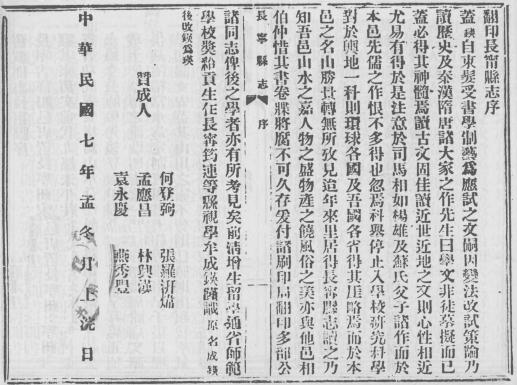 翻印長甯縣志序
蓋鍈自束髮受書學制藝為應試之文嗣因變法改試策論乃
讀歷史及秦漢隋唐諸大家之作先生曰學文非徒摹擬而已
蓋必得其神髓焉讀古文固佳讀近世近地之文則心性相近
尤易有得於是注意於司馬相如楊雄及蘇氏父子諸作而於
本邑先儒之作恨不多得也忽焉科舉停止入學校研究科學
對於輿地一科則環球各國及吾國各省得其厓略焉而於本
邑之名山勝景轉無所攷見近年來里居得長甯縣志讀之乃
知吾邑山水之嘉人物之盛物產之饒風俗之美亦與他邑相
伯仲惜其書卷牒將腐不可久存爰付諸刷印局翻印多部公
長甯縣志 序
諸同志俾後之學者亦有所考見矣前清增生留學通省師範
學校獎給貢生任長甯筠連等縣視學牟成鍈謹識原名成
後改鍈為瑛
贊成人
何登弼 張羅
孟應昌 林興
袁永慶 燕秀豐
中華民國七年孟冬月上浣日